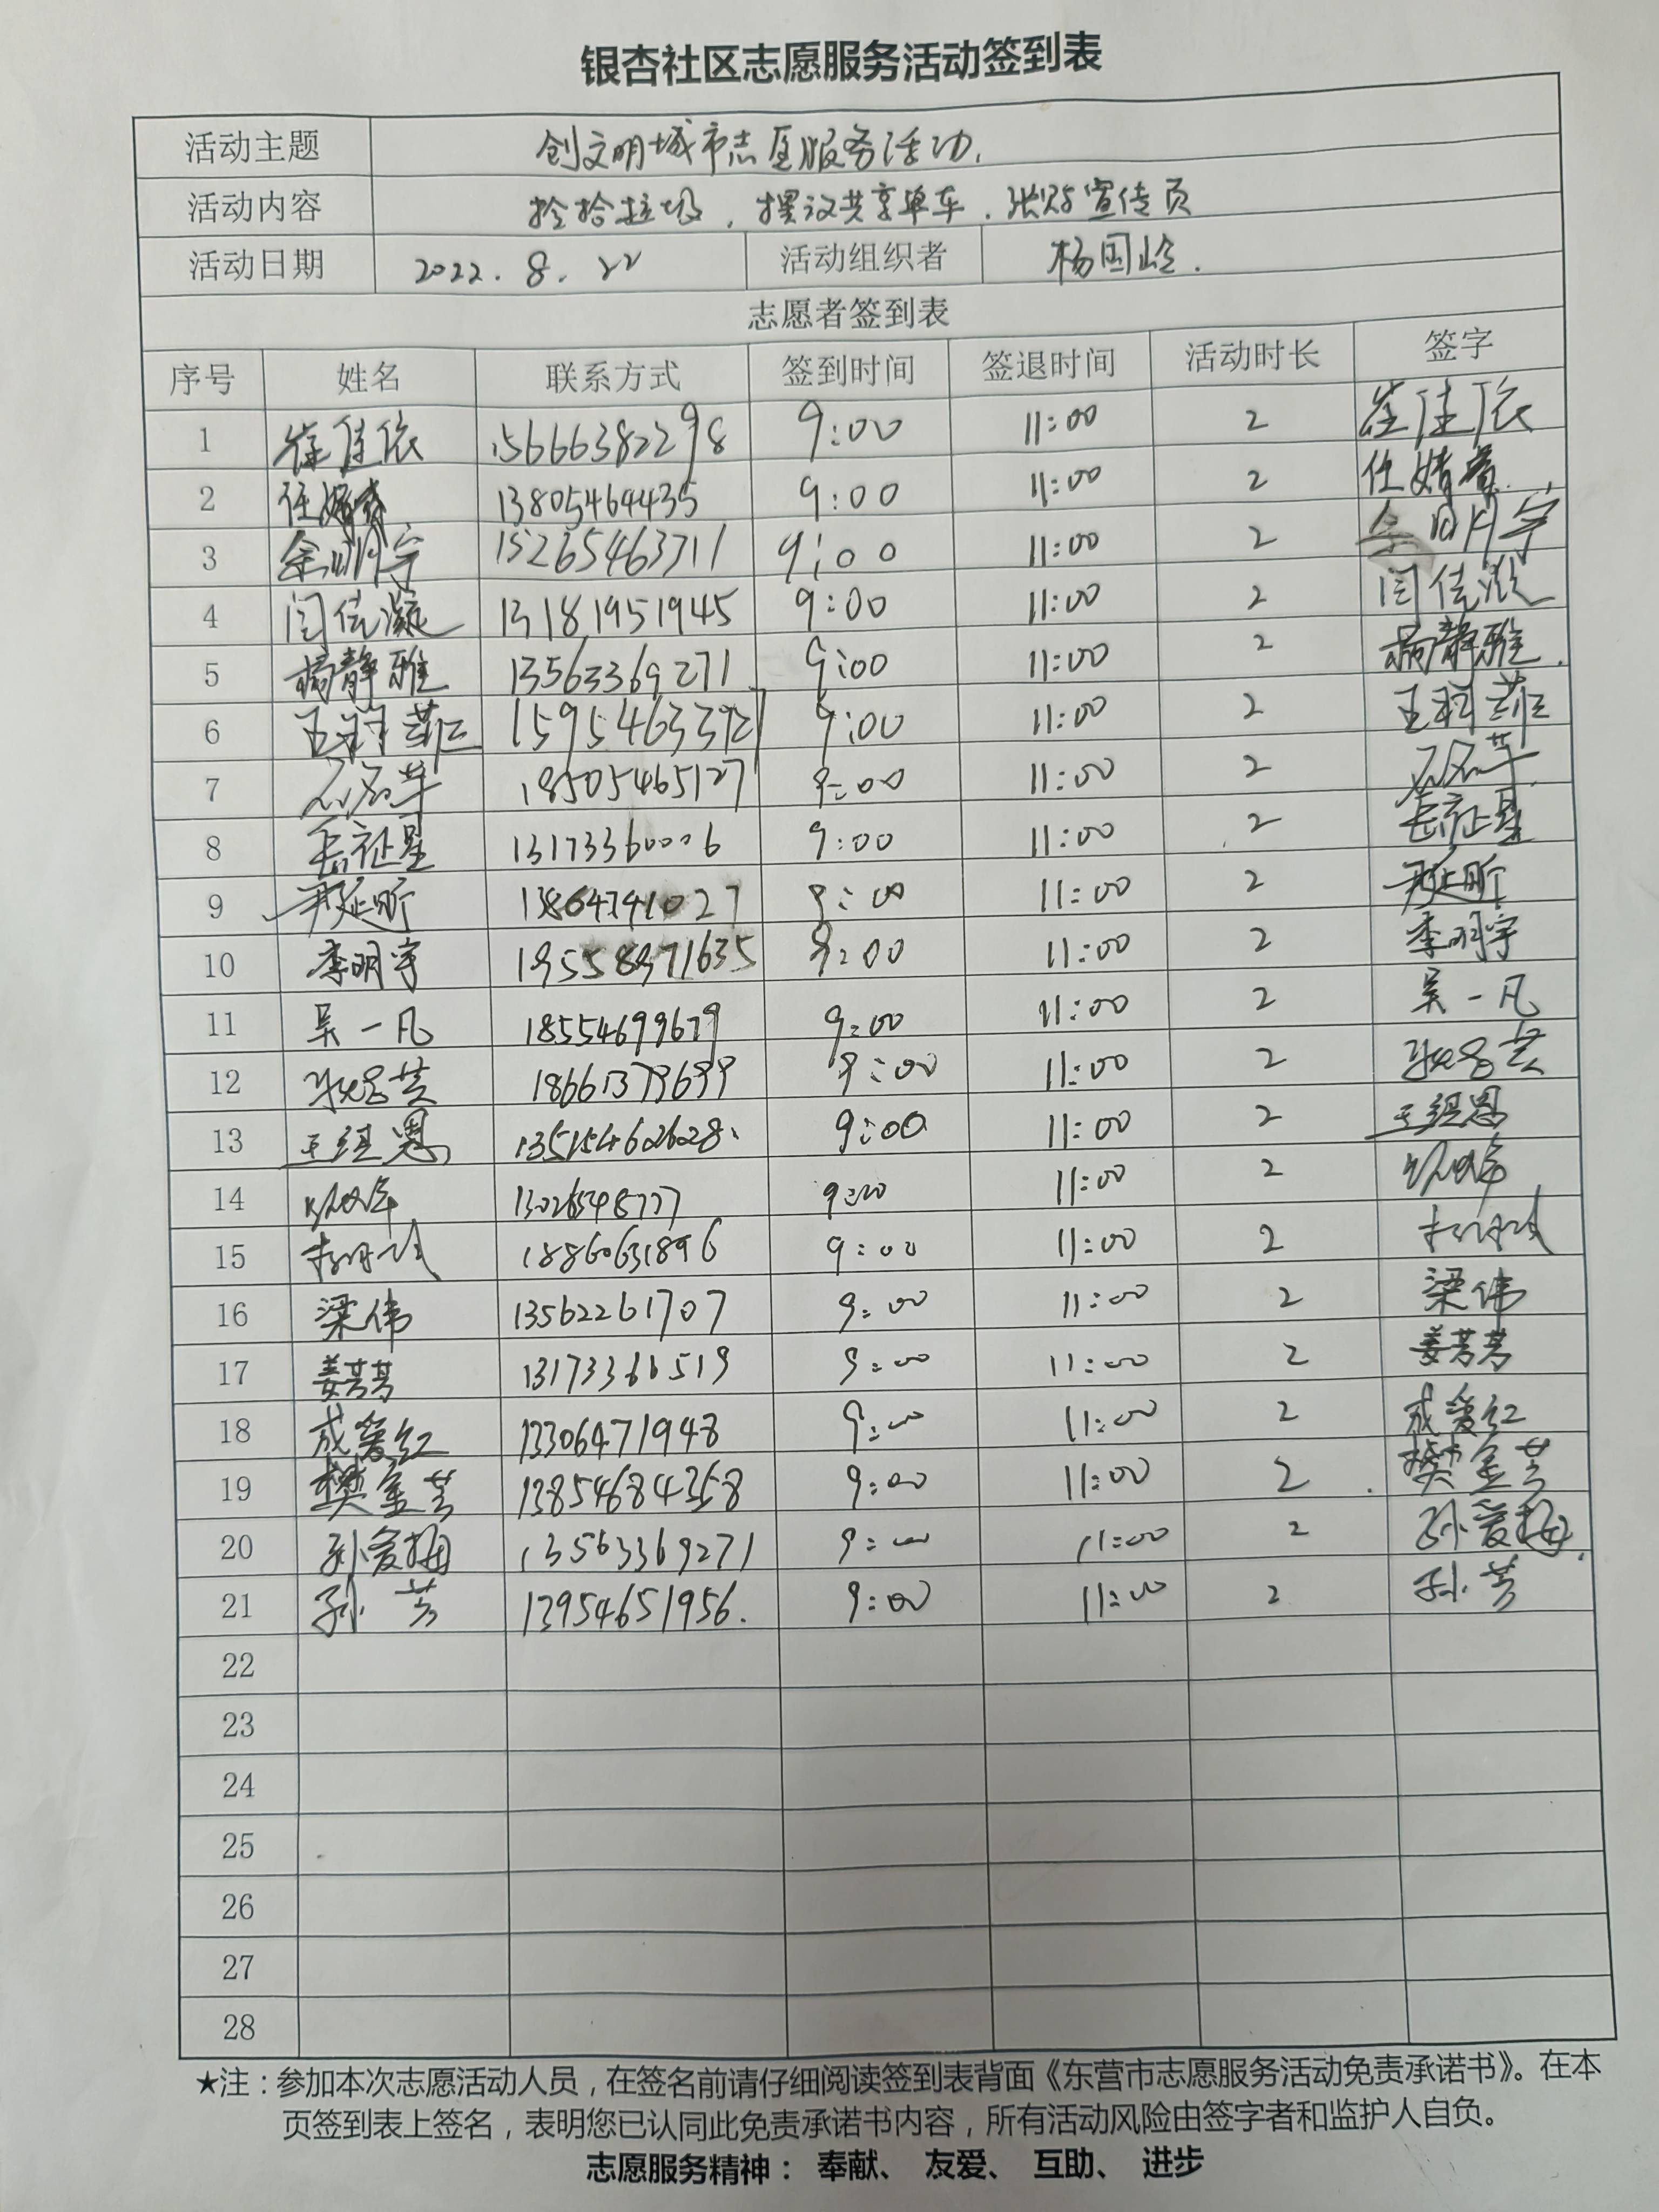 银杏社区志愿服务活动签到表
活动主题 创文明城市志愿服务活动.
活动内容 捡拾垃圾,摆放共享单车.张贴宣传页
活动日期 2022.8.22 活动组织者 杨国岭.
志愿者签到表
序号 姓名 联系方式 签到时间 签退时间 活动时长 签字
1 崔佳依 15666382298 9:00 11:00 2 崔佳依
2 任婧 13805464435 9:00 11:00 2 任婧
3 余明宇 15265463711 9:00 11:00 2 余明宇
4 闫佳凝 13181951945 9:00 11:00 2 闫佳凝
5 静雅 13563369271 9:00 11:00 2 静雅.
6 王 菲 9:00 11:00 2 王 菲
7 18505465127 9:00 11:00 2
8 13173360006 9:00 11:00 2
9 尹延昕 13864741027 9:00 11:00 2 尹延昕
10 李明宇 19558971635 9:00 11:00 2 李明宇
11 吴一凡 18554699679 9:00 11:00 2 吴一凡
12 18661379699 9:00 11:00 2
13 王绍恩 9:00 11:00 2 王绍恩
14 9:00 11:00 2
15 18860631896 9:00 11:00 2
16 梁伟 13562261707 9:00 11:00 2 梁伟
17 姜芳芳 13173366519 9:00 11:00 2 姜芳芳
18 成爱红 13306471948 9:00 11:00 2 成爱红
19 樊金芳 13854684358 9:00 11:00 2 樊金芳
20 孙爱梅 13563369271 9:00 11:00 2 孙爱梅.
21 孙芳 13954651956. 9:00 11:00 2 孙芳
22
23
24
25
26
27
28
★注：参加本次志愿活动人员，在签名前请仔细阅读签到表背面《东营市志愿服务活动免责承诺书》。在本
页签到表上签名，表明您已认同此免责承诺书内容，所有活动风险由签字者和监护人自负。
志愿服务精神： 奉献、 友爱、 互助、 进步